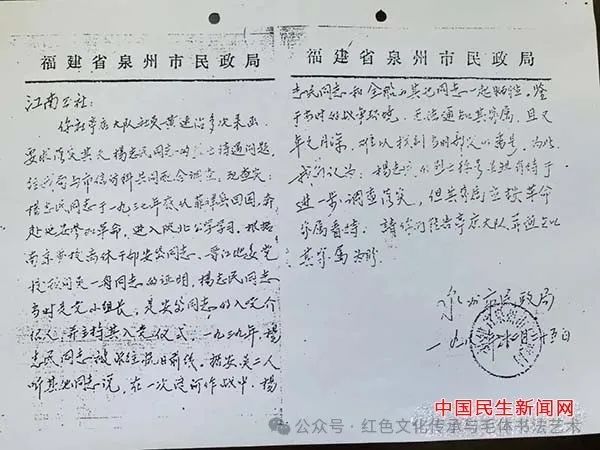 福建省泉州市民政局
江南公社:
你社亭店大队社员黄速治多次来函,
要求落实其父杨志民同志的烈士待遇问题,
经我局与市信访科共同配合调查,现查实:
杨志民同志于一九三七年底从菲律宾回国,奔
赴地参加革命,进入陕北公学学习。根据
南京学校离休干部安岱同志、晋江地委党
校顾问吴一舟同志的证明,杨志民同志
当时是党小组长,是安岱同志的入党介
绍人,并主持其入党仪式,一九三九年,杨
志民同志被派往抗日前线。据安、吴二人
听其他同志说,在一次渡河作战中,杨
福建省泉州市民政局
志民同志和全船其他同志一起牺牲。鉴
于当时的战争环境,无法通知其家属,且又
年久月深,难以找到当时部队的番号,为此,
我们认为:杨志民的烈士称号虽还有待于
进一步调查落实,但其家属应按革命
家属看待。请你们转告亭店大队并适当以
其家属为盼。
泉州市民政局
一九八年十二月十五日
中国民生新闻网
公众号·红色文化传承与毛体书法艺术